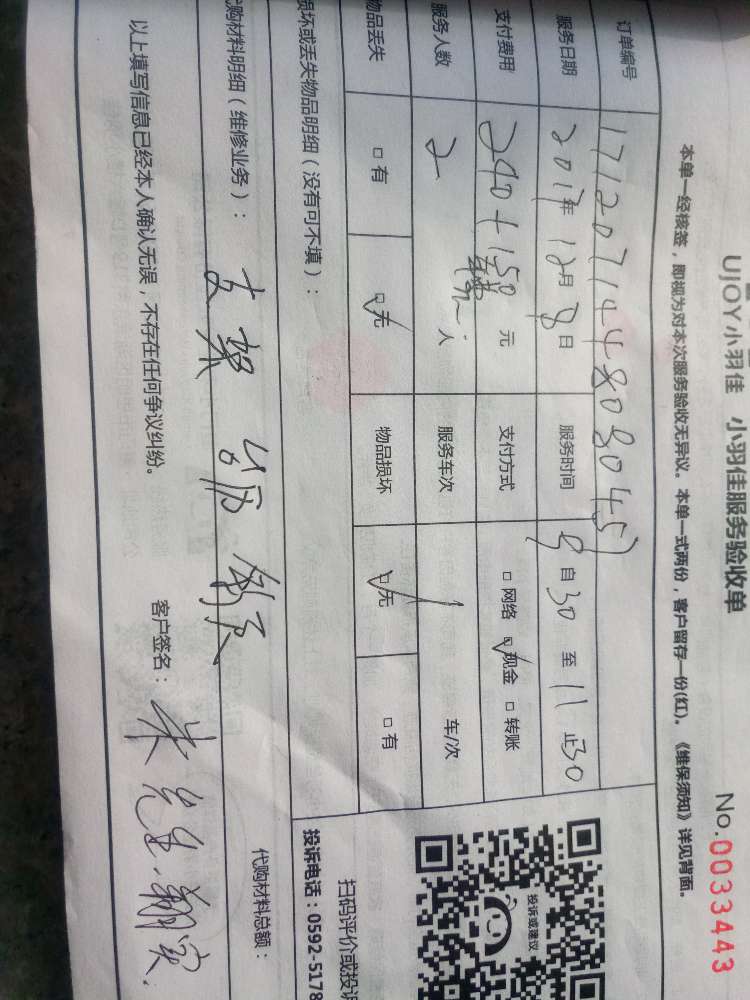 UJOY小羽佳 小羽佳服务验收单
No.0033443
本单一经核签，即视为对本次服务验收无异议。本单一式两份，客户留存一份(红)。《维保须知》详见背面。
订单编号 1712071448080457
服务日期 2017年12月8日 服务时间 9自30至11正30
支付费用 240+150元 支付方式 □网络 ☑现金 □转账
服务人数 2人 服务车次 1 车/次
物品丢失 □有 ☑无 物品损坏 ☑无 □有
损坏或丢失物品明细（没有可不填）：
代购材料明细（维修业务）：
代购材料总额：
以上填写信息已经本人确认无误，不存在任何争议纠纷。
客户签名：朱先生
扫码评价或投诉
投诉电话：0592-5178
投诉或建议